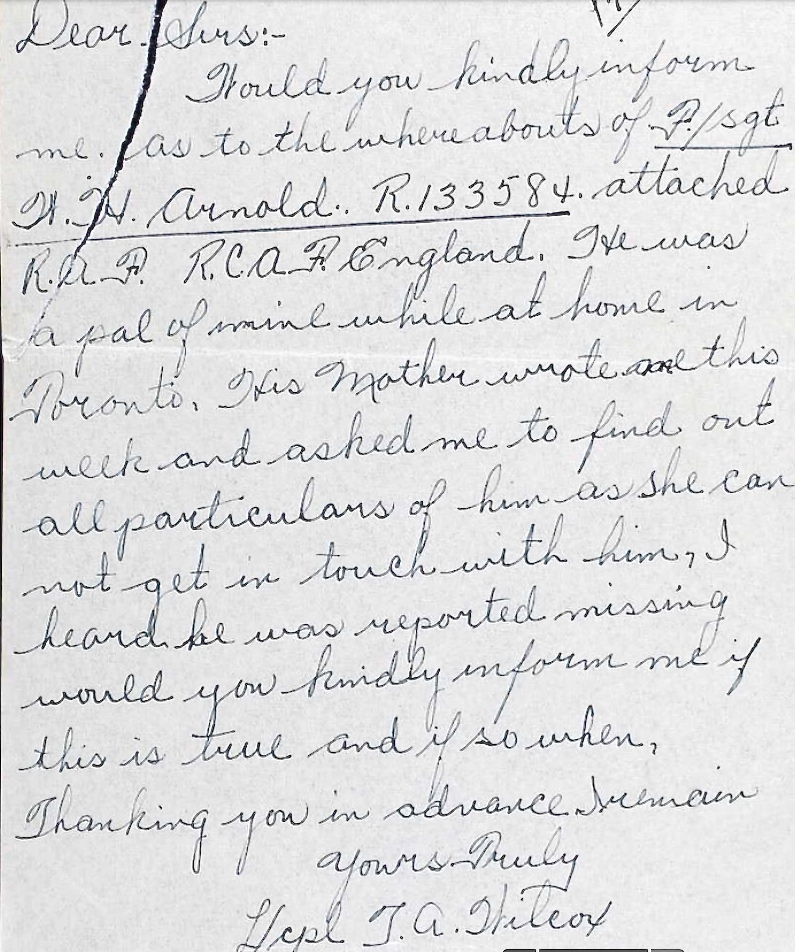 Dear Sirs:-
Would you kindly inform
me. as to the whereabouts of F/sgt
W.H. Arnold. R.133584. attached
R.A.F. R.C.A.F. England. He was
a pal of mine while at home in
Toronto. His Mother wrote me this
week and asked me to find out
all particulars of him as she can
not get in touch with him, I
heard he was reported missing
would you kindly inform me if
this is true and if so when,
Thanking you in advance I remain
Yours Truly
L/cpl T.A. Wilcox